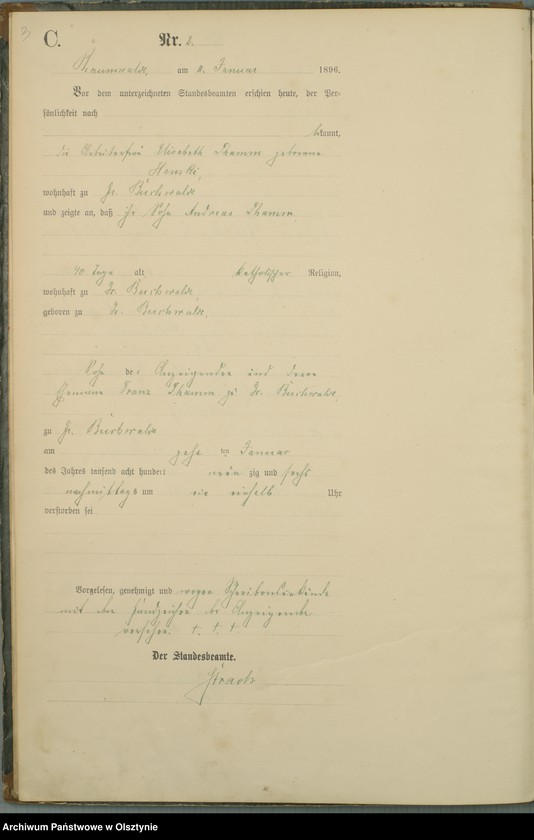 3
C.
Nr. 2.
Braunswalde, am 11. Januar 1896.
Vor dem unterzeichneten Standesbeamten erschien heute, der Per-
sönlichkeit nach
bekannt,
die Arbeiterfrau Elisabeth Thamm geborene
wohnhaft zu Gr. Buchwalde
und zeigte an, daß ihr Sohn Andreas Thamm
40 Tage alt katholischer Religion,
wohnhaft zu Gr. Buchwalde,
geboren zu Gr. Buchwalde,
Sohn der Anzeigenden und deren
Ehemann Franz Thamm zu Gr. Buchwalde,
zu Gr. Buchwalde
am zehn ten Januar
des Jahres tausend acht hundert neun zig und sechs
nachmittags um ein einhalb Uhr
verstorben sei
Vorgelesen, genehmigt und wegen Schreibensunkunde
mit dem Handzeichen der Anzeigenden
versehen. † † †
Der Standesbeamte.
Archiwum Państwowe w Olsztynie